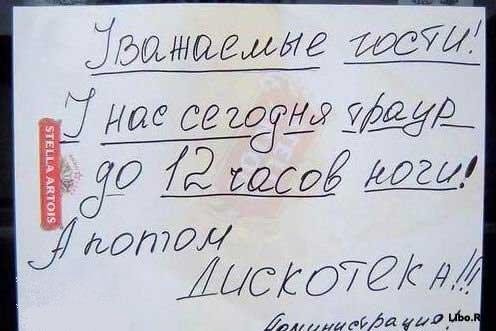 Уважаемые гости!
У нас сегодня траур
до 12 часов ночи!
А потом
Дискотека!!!
Администрация
STELLA ARTOIS
Libo.R